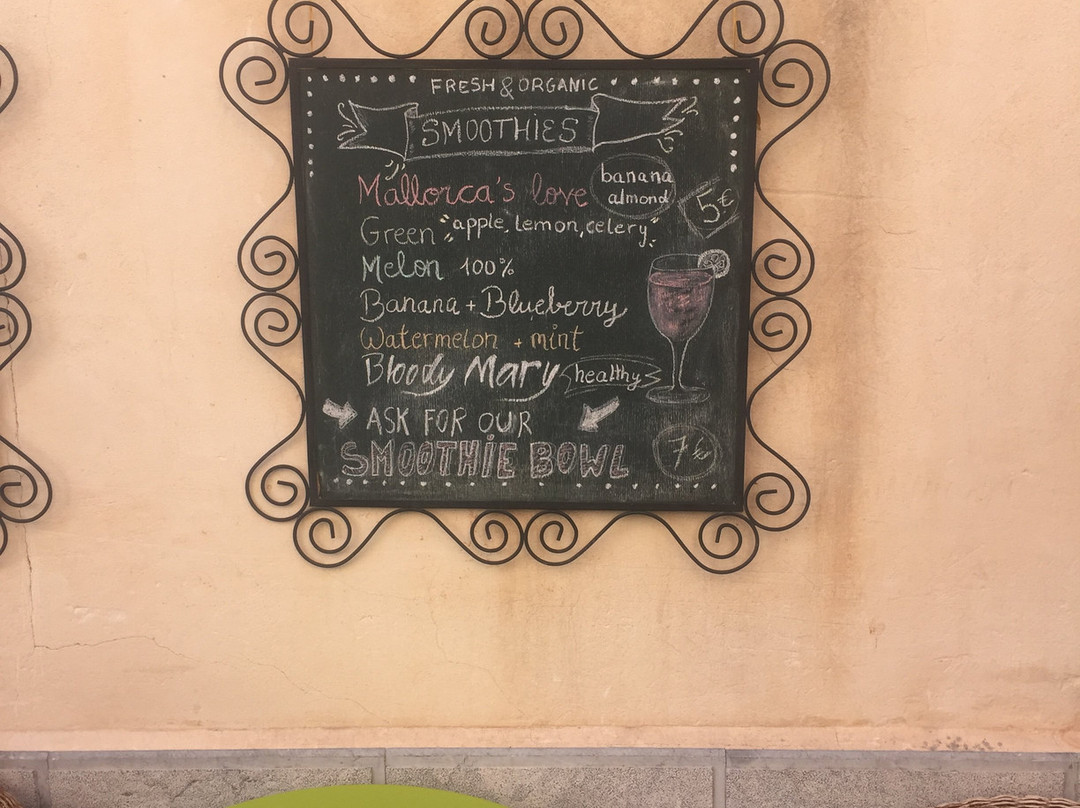 FRESH & ORGANIC
SMOOTHIES
Mallorca's love banana almond 5€
Green "apple, lemon, celery"
Melon 100%
Banana + Blueberry
Watermelon + mint
Bloody Mary healthy
ASK FOR OUR
SMOOTHIE BOWL 7€